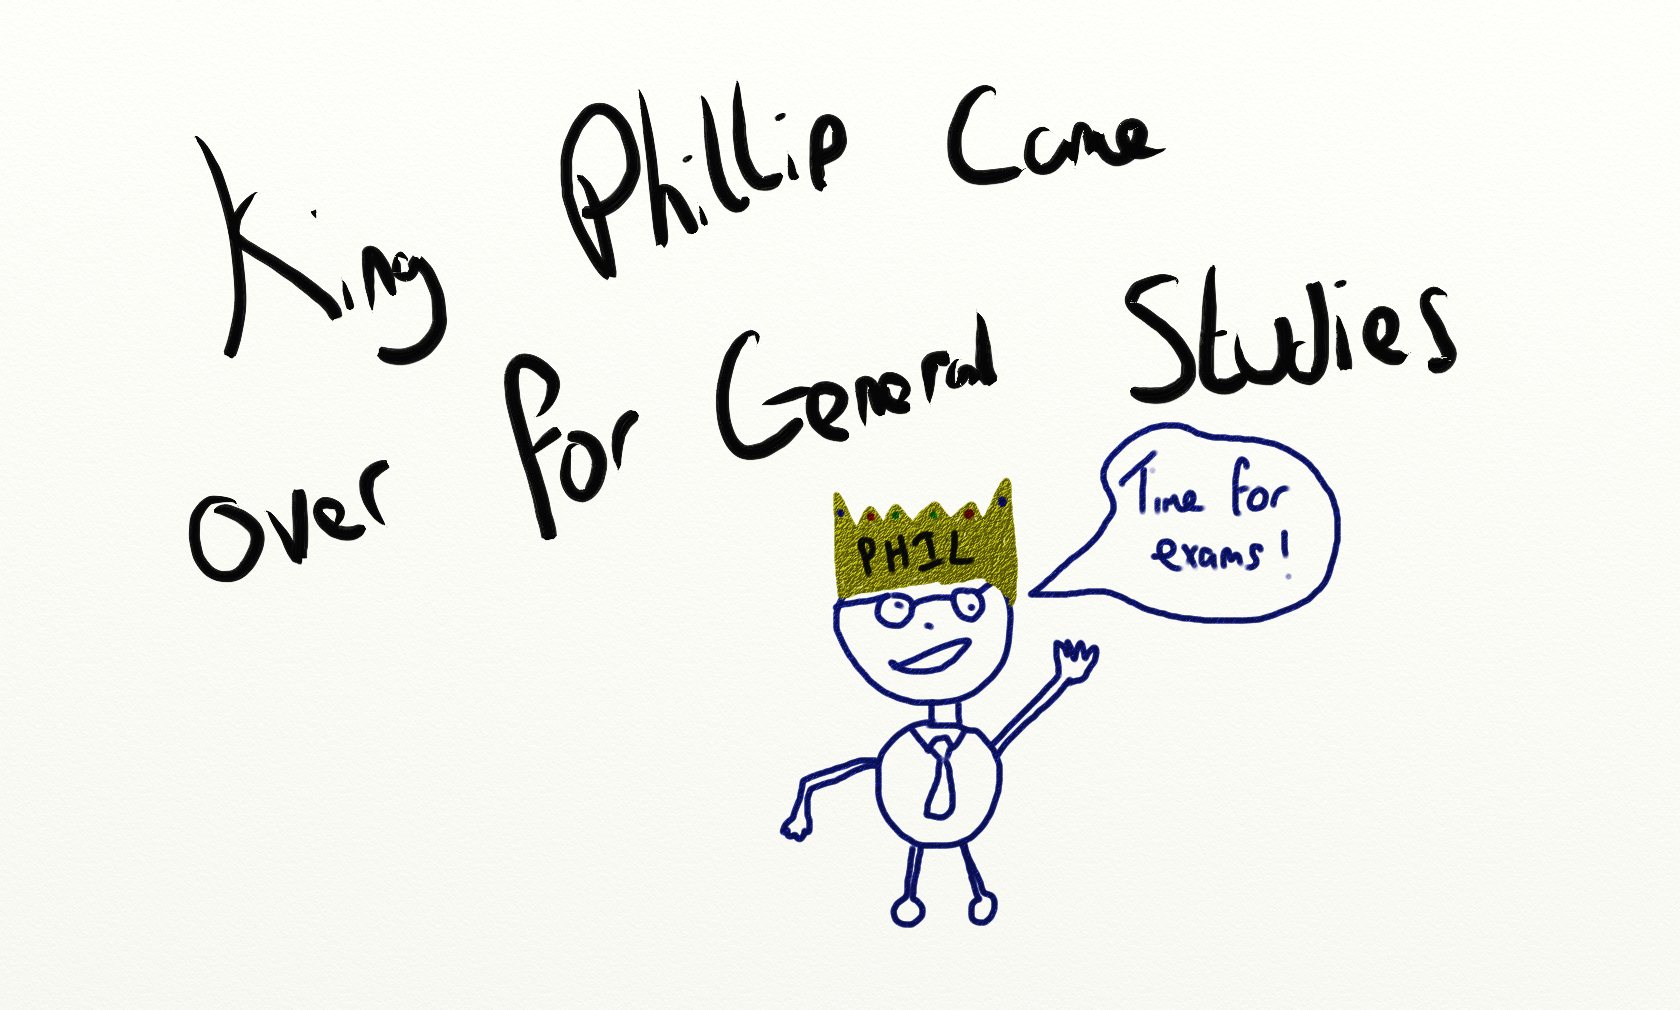 King Phillip Came
over for General Studies
Time for
exams!
PHIL